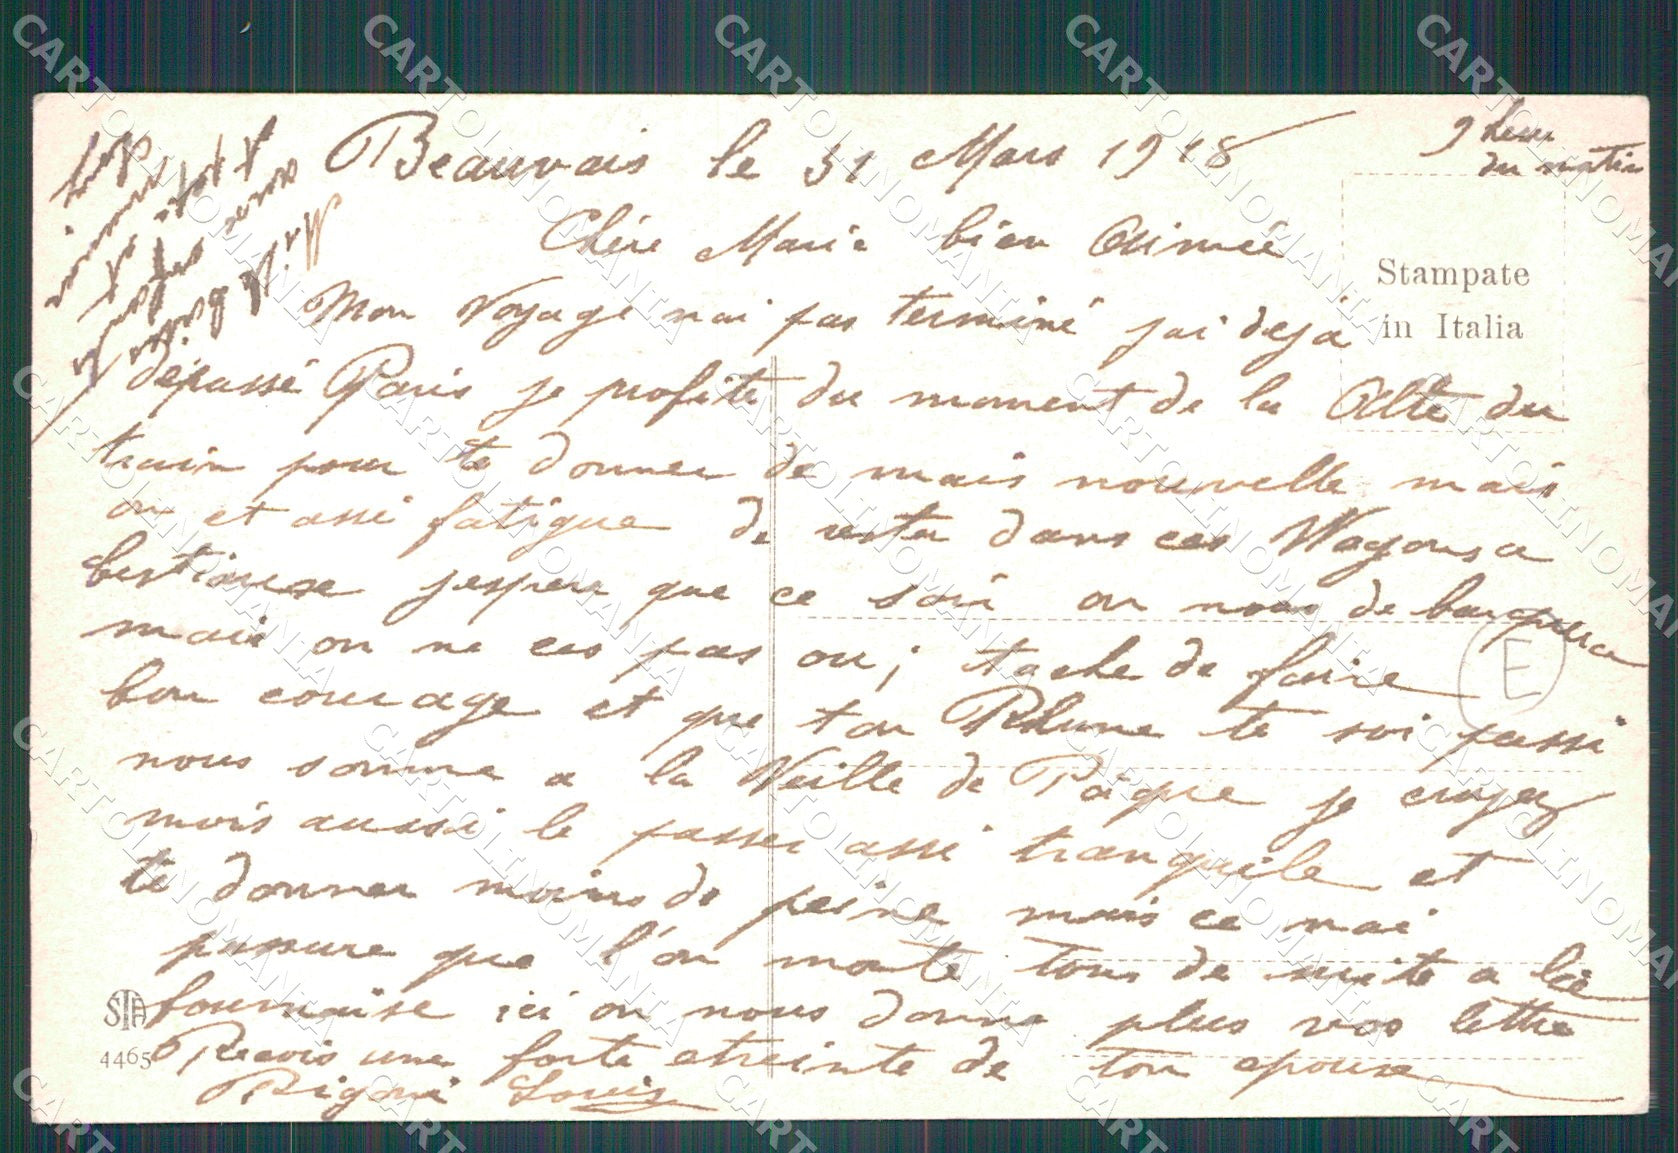 Beauvais le 31 Mars 1918
9 heur
du matin
Chére Marie bien Aimée
Mon Voyage nai pas terminé jai deja
dépassé Paris je profite du moment de la Alte du
train pour te donner de mais nouvelle mais
on et assi fatigue de rester dans ces Wagons a
bestiause jesper que ce soir on nous de barquera
mais on ne ces pas ou; tache de faire
bon courage et que ton Rhume te soi passi
nous somme a la Veille de Pâque je croyez
mois aussi le passer assi tranquile et
te donner moins de peine mais ce mai
que l'on monte tous de suite a la
fournaise ici on nous donne plus vos lettre
Recois une forte etreinte de ton epoux
Louis
Stampate
in Italia
E
STA
4465
CARTOLINOMANIA